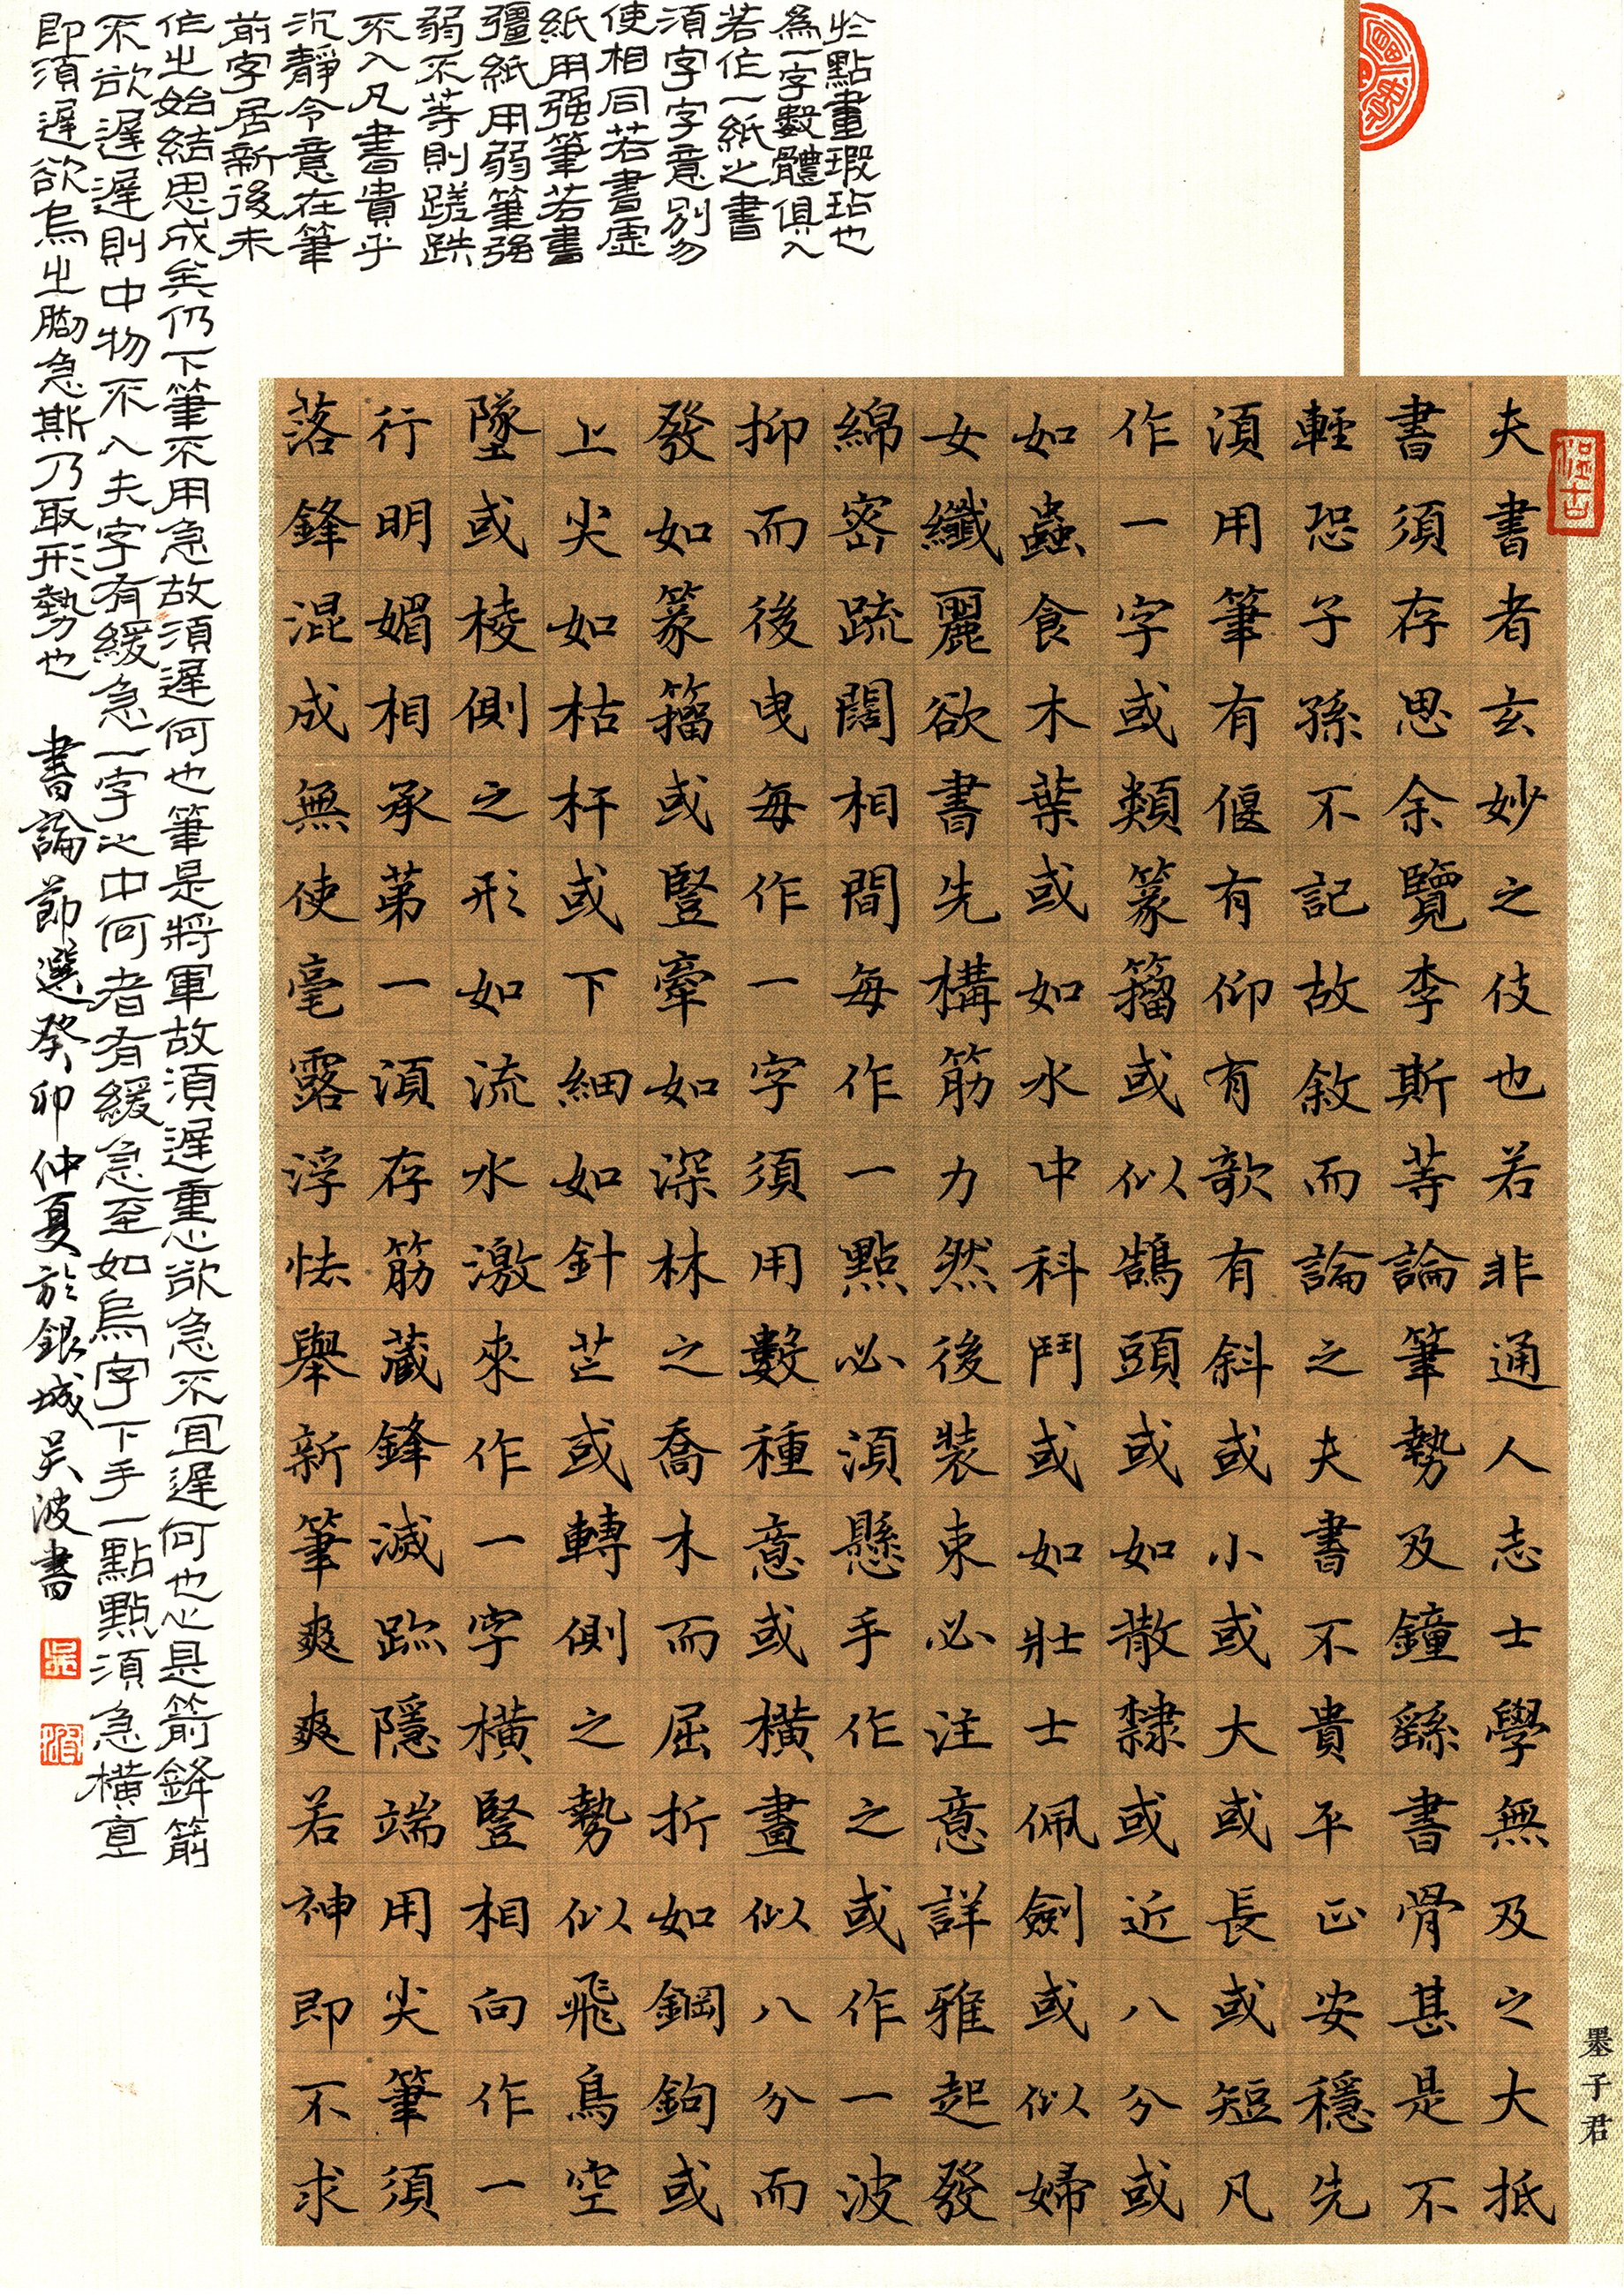 夫書者玄妙之伎也若非通人志士學無及之大抵
書須存思余覽李斯等論筆勢及鐘繇書骨甚是不
輕恐子孫不記故敘而論之夫書不貴平正安穩先
須用筆有偃有仰有欹有斜或小或大或長或短凡
作一字或類篆籀或似鵠頭或如散隸或近八分或
如蟲食木葉或如水中科鬥或如壯士佩劍或似婦
女纖麗欲書先構筋力然後裝束必注意詳雅起發
綿密疏闊相間每作一點必須懸手作之或作一波
抑而後曳每作一字須用數種意或橫畫似八分而
發如篆籀或豎牽如深林之喬木而屈折如鋼鉤或
上尖如枯杆或下細如針芒或轉側之勢似飛鳥空
墜或棱側之形如流水激來作一字橫豎相向作一
行明媚相承第一須存筋藏鋒滅跡隱端用尖筆須
落鋒混成無使毫露浮怯舉新筆爽爽若神即不求
於點畫瑕玷也
為一字數體俱入
若作一紙之書
須字字意別勿
使相同若書虛
紙用强筆若書
彊紙用弱筆强
弱不等則蹉跌
不入凡書貴乎
沉靜令意在筆
前字居新後未
作之始結思成矣仍下筆不用急故須遲何也筆是將軍故須遲重心欲急不宜遲何也心是箭鋒箭
不欲遲遲則中物不入夫字有緩急一字之中何者有緩急至如烏字下手一點點須急橫直
即須遲欲烏之腳急斯乃取形勢也 書論節選癸卯仲夏於銀城吳波書
墨子君